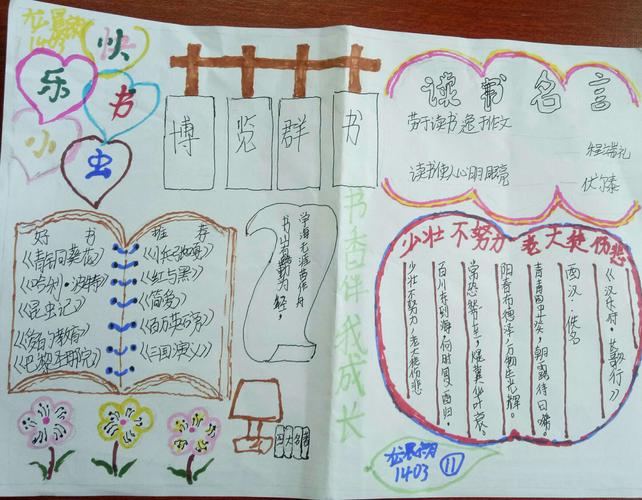 1403
快
乐
书
小
虫
博览群书
读书名言
劳于读书 逸于作文
程端礼
读书使人心明眼亮
伏尔泰
好书
推荐
《青铜葵花》
《哈利·波特》
《昆虫记》
《爱的教育》
《巴黎圣母院》
《小兵张嘎》
《红与黑》
《简爱》
《百万英镑》
《三国演义》
书山有路勤为径,
学海无涯苦作舟
书香伴我成长
少壮不努力 老大徒伤悲
《汉乐府·长歌行》
西汉·佚名
青青园中葵,朝露待日晞。
阳春布德泽,万物生光辉。
常恐秋节至,焜黄华叶衰。
百川东到海,何时复西归。
少壮不努力,老大徒伤悲
四大名著
1403
11